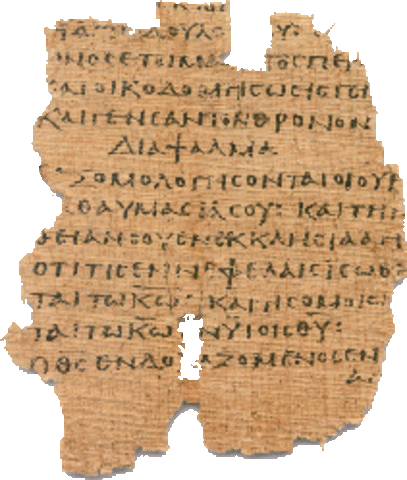 ΤΑ ΔΟΥΛΩ Υ:
ΩΝΟϹΕΤΟΙΜΑ ΤΟϹΠΕΡ
ΚΑΙΟΙΚΟΔΟΜΗϹΩΕΙϹΓΕ
ΚΑΙΓΕΝΕΑΝΤΟΝΘΡΟΝΟΝ
ΔΙΑΨΑΛΜΑ
ΞΟΜΟΛΟΓΗϹΟΝΤΑΙΟΙΟΥΡ
ΘΑΥΜΑϹΙΑϹΟΥ: ΚΑΙΤΗΝ
ΘΕΙΑΝϹΟΥΕΝΕΚΚΛΗϹΙΑΑΓΙ
ΟΤΙΤΙϹΕΝΝΕΦΕΛΑΙϹΙϹΩΘΗ
ΤΑΙΤΩΚ̅Ω̅: ΚΑΙΤΙϹΟΜΟΙΩ
ΤΑΙΤΩΚ̅Ω̅ ΝΥΙΟΙϹΘ̅Υ̅:
ΟΘ̅Ϲ̅ΕΝΔΟ ΑΖΟΜΕΝΟϹΕΝ